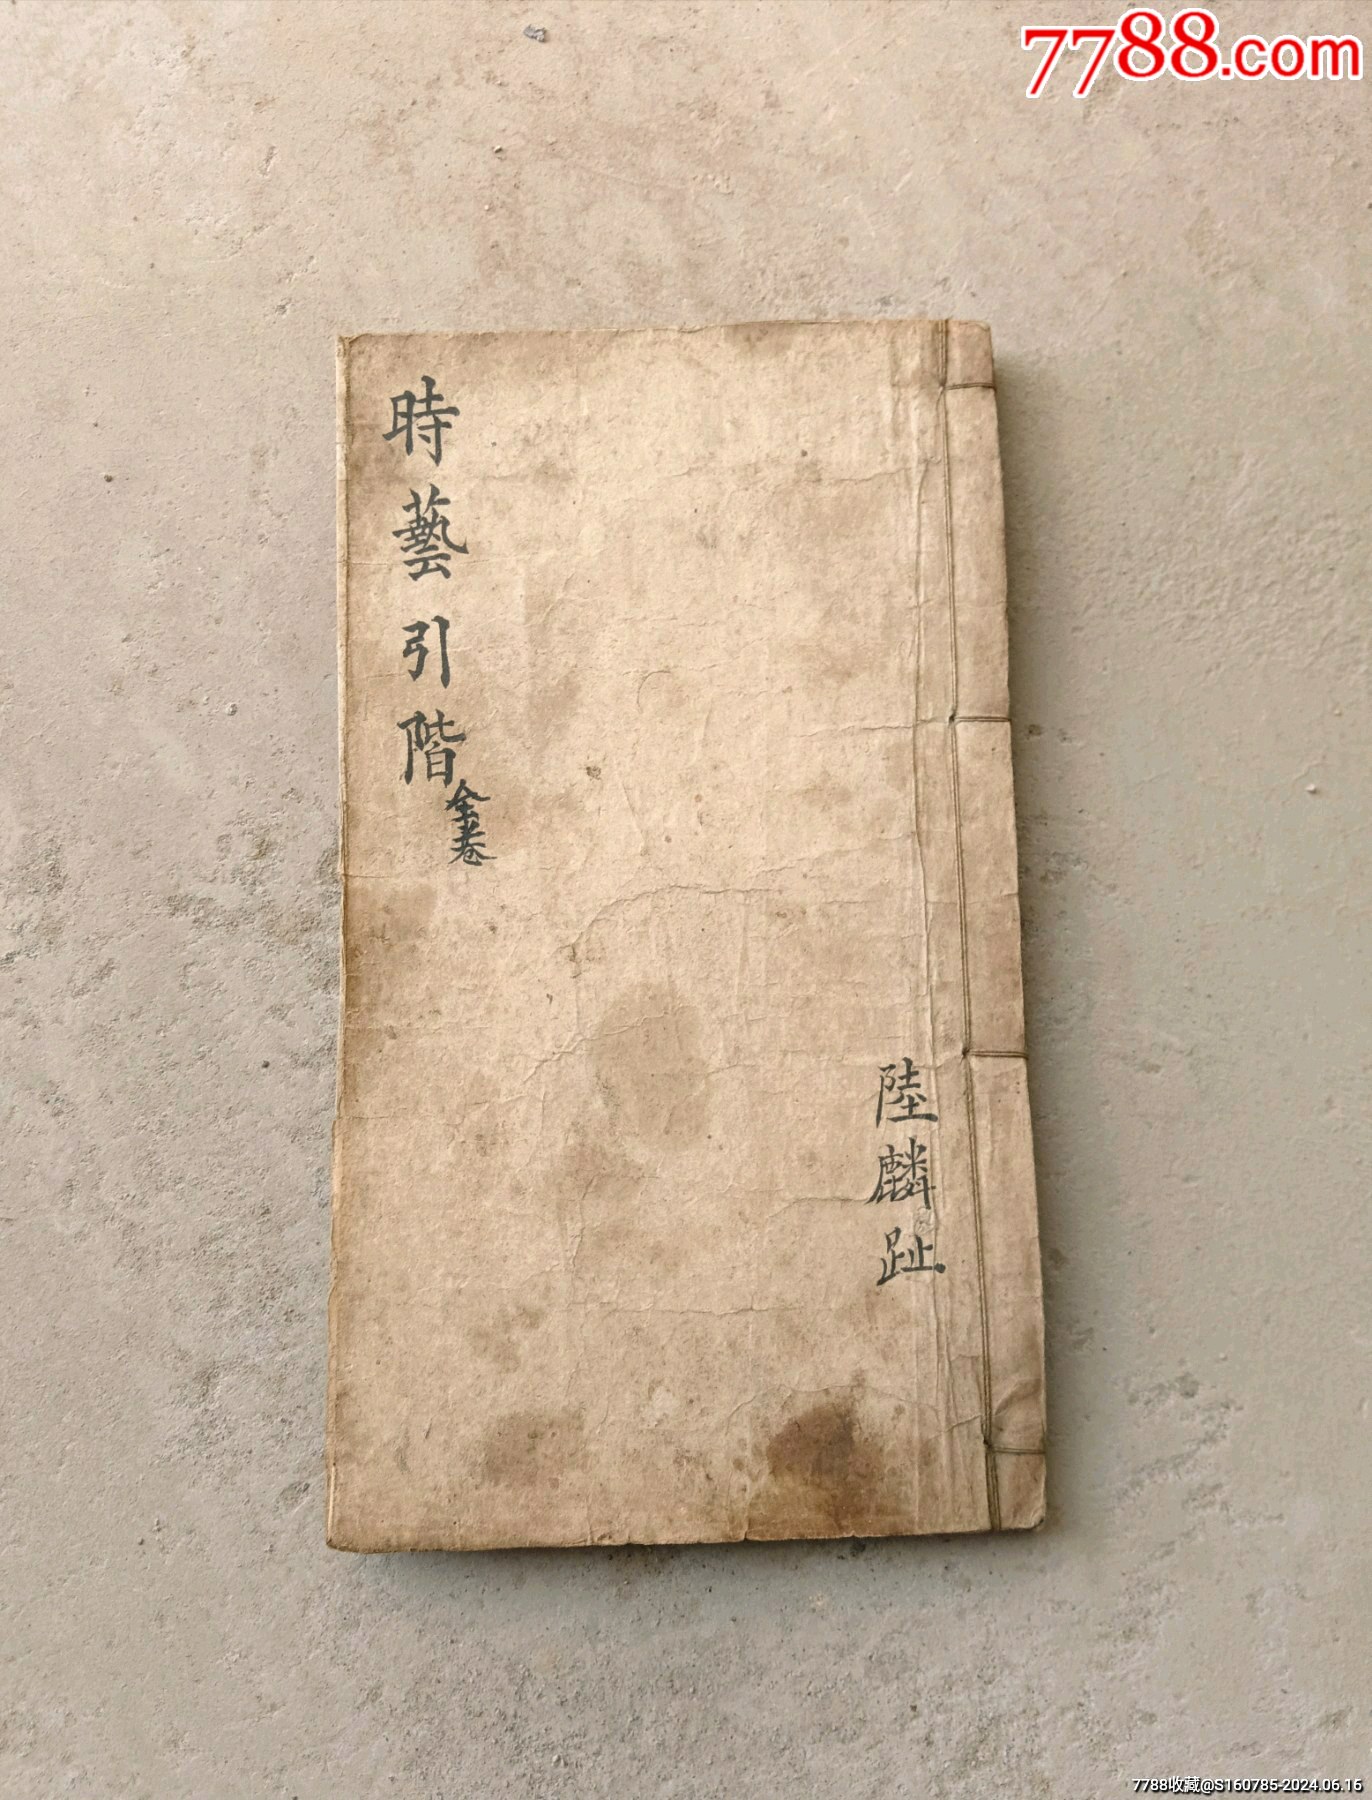 7788.com
時藝引階
全卷
陸麟趾
7788收藏@S160785-2024.06.16